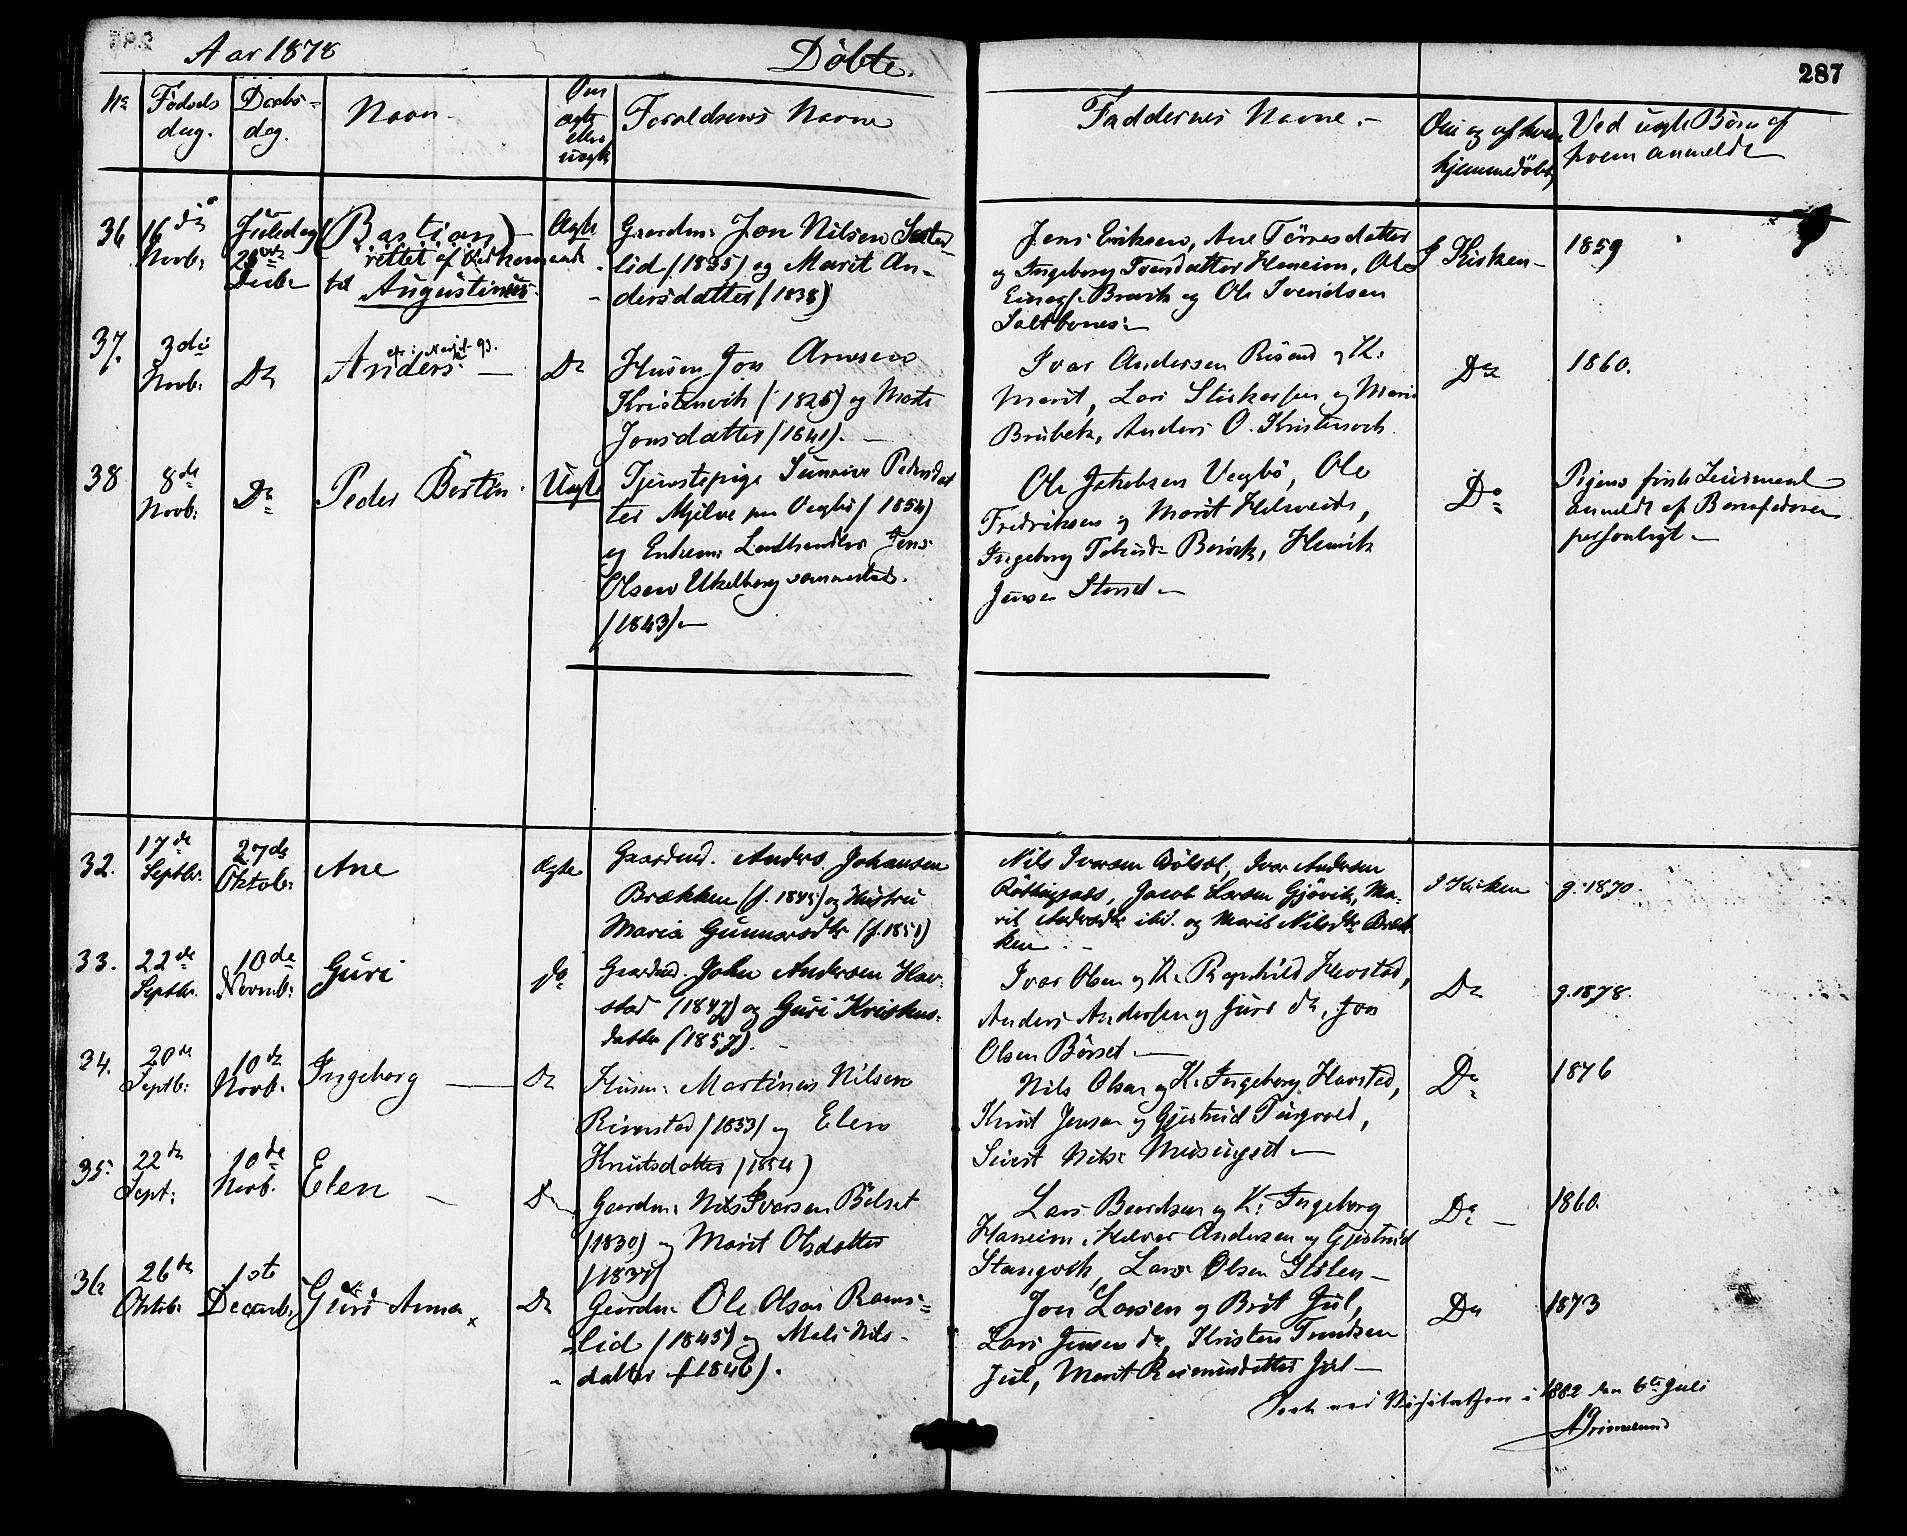 Aar 1878
Döbte.
287
No
Födsels
dag.
Daabs-
dag.
Navn.
Om
ægte
eller
uægte
Forældrenes Navne
Faddernes Navne. -
Om og af hvem
hjemmedöbt
Ved uægte Börn af
hvem anmeldt
36
16de
Novb:
Juledag
25de
Decb:
(Bastian)
rettet af Vedkommende
til Augustinus.
Ægte
Gaardm: Jon Nilsen
lid (1835) og Marit An-
dersdatter (1838)
Jens Eriksen, Ane Törresdatter
og Ingeborg Haneim, Ole
og Ole Sivertsen
Saltbones.
I Kirken -
1859
37.
3die
Novb:
Do
Anders. -
93.
Do
Husm Jon Arnesen
Kristenvik (1825) og Marit
Jonsdatter (1841). -
Ivar Andersen og K:
Marit, Lars og Marit
Brubek, Anders O. Kristenvik
Do
1860.
38
8de
Novb:
Do
Peder Bertin.
Uægte
Tjenestepige Sunniva Pedersdat
ter Mjelve paa Vegbö (1854)
og Enkem: Landhandler Jens
Olsen Ukelberg sammested.
(1843) -
Ole Jakobsen Vegbö, Ole
Fredriksen og Marit
Ingeborg Henrik
Jensen
Do
Pigens förste Leiermaal
anmeldt af Barnefaderen
personligt -
32.
17de
Septbr.
27de
Oktob:
Ane
Ægte
Gaardmd. Anders Johansen
Brækken (f. 1845) og Hustru
Maria Gunnarsdtr (f. 1851)
Nils Iversen Bölset, Ivar Andersen
Röttingsnes, Jacob Larsen Gjövik, Ma-
rit Andersdtr ibid. og Marit Nilsdtr Bræk
ken
I Kirken
g. 1870.
33.
22de
Septbr.
10de
Novemb:
Guri
do
Gaardmd. John Andersen Hav-
stad (1847) og Guri Kristens-
datter (1857).
Ivar Olsen og K: Ragnhild Havstad,
Anders Andersen og Guri do, Jon
Olsen Börset -
Do
g. 1878.
34.
20de
Septb:
10de
Novb.
Ingeborg
Do
Husm: Martinus Nilsen
Rimstad (1853) og Elen
Knutsdatter (1854)
Nils Olsen og K: Ingeborg Havstad,
Knut Jensen og Gjertrud
Sivert Nils:
Do
1876
35.
22de
Sept:
10de
Novb.
Elen -
Do
Gaardm: Nils Ivarsen Bölset
(1830) og Marit Olsdatter
(1837)
Lars Baardsen og K: Ingeborg
Haneim, Halvor Andersen og Gjertrud
Stangvik, Lars Olsen Stölen -
Do -
1860.
36
26de
Oktob:
1ste
Decemb:
Guri Anna x
Do
Gaardm: Ole Olsen Rams-
lid (1845) og Mali Nils-
datter (1846).
Jon Larsen og Brit Jul,
Lars Jensen do, Kristen
Jul, Marit Rasmusdatter Jul -
Do
1873
Seet ved Visitatsen i 1882 den 6te Juli
AGrimelund